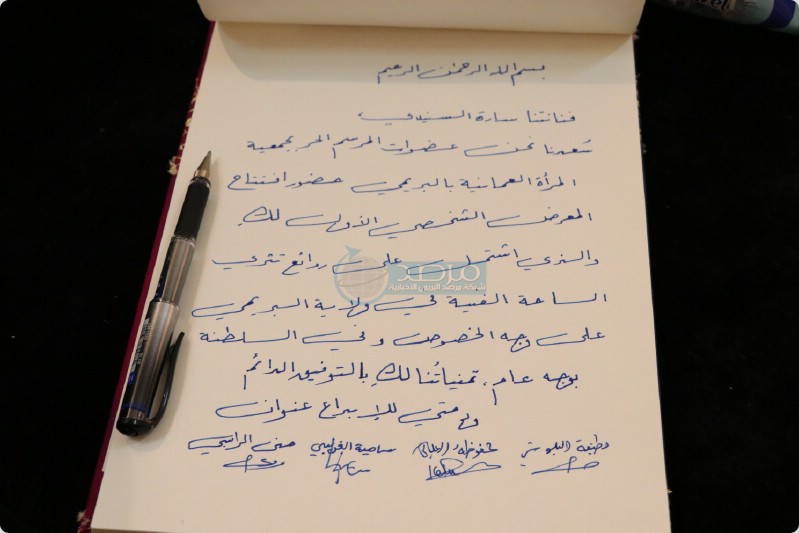 بسم الله الرحمن الرحيم
فنانتنا سارة السنيدي،
سُعدنا نحن عضوات المرسم الحر بجمعية
المرأة العمانية بالبريمي حضور افتتاح
المعرض الشخصي الأول لكِ
والذي اشتمل على روائع تثري
الساحة الفنية في ولاية البريمي
على وجه الخصوص وفي السلطنة
بوجه عام، تمنياتُنا لكِ بالتوفيق الدائم
ودمتي للإبداع عنوان
وطنية البلوشي محفوظة سامية الغريبي منى الراسبي
مرصد
شبكة مرصد البريمي الاخبارية